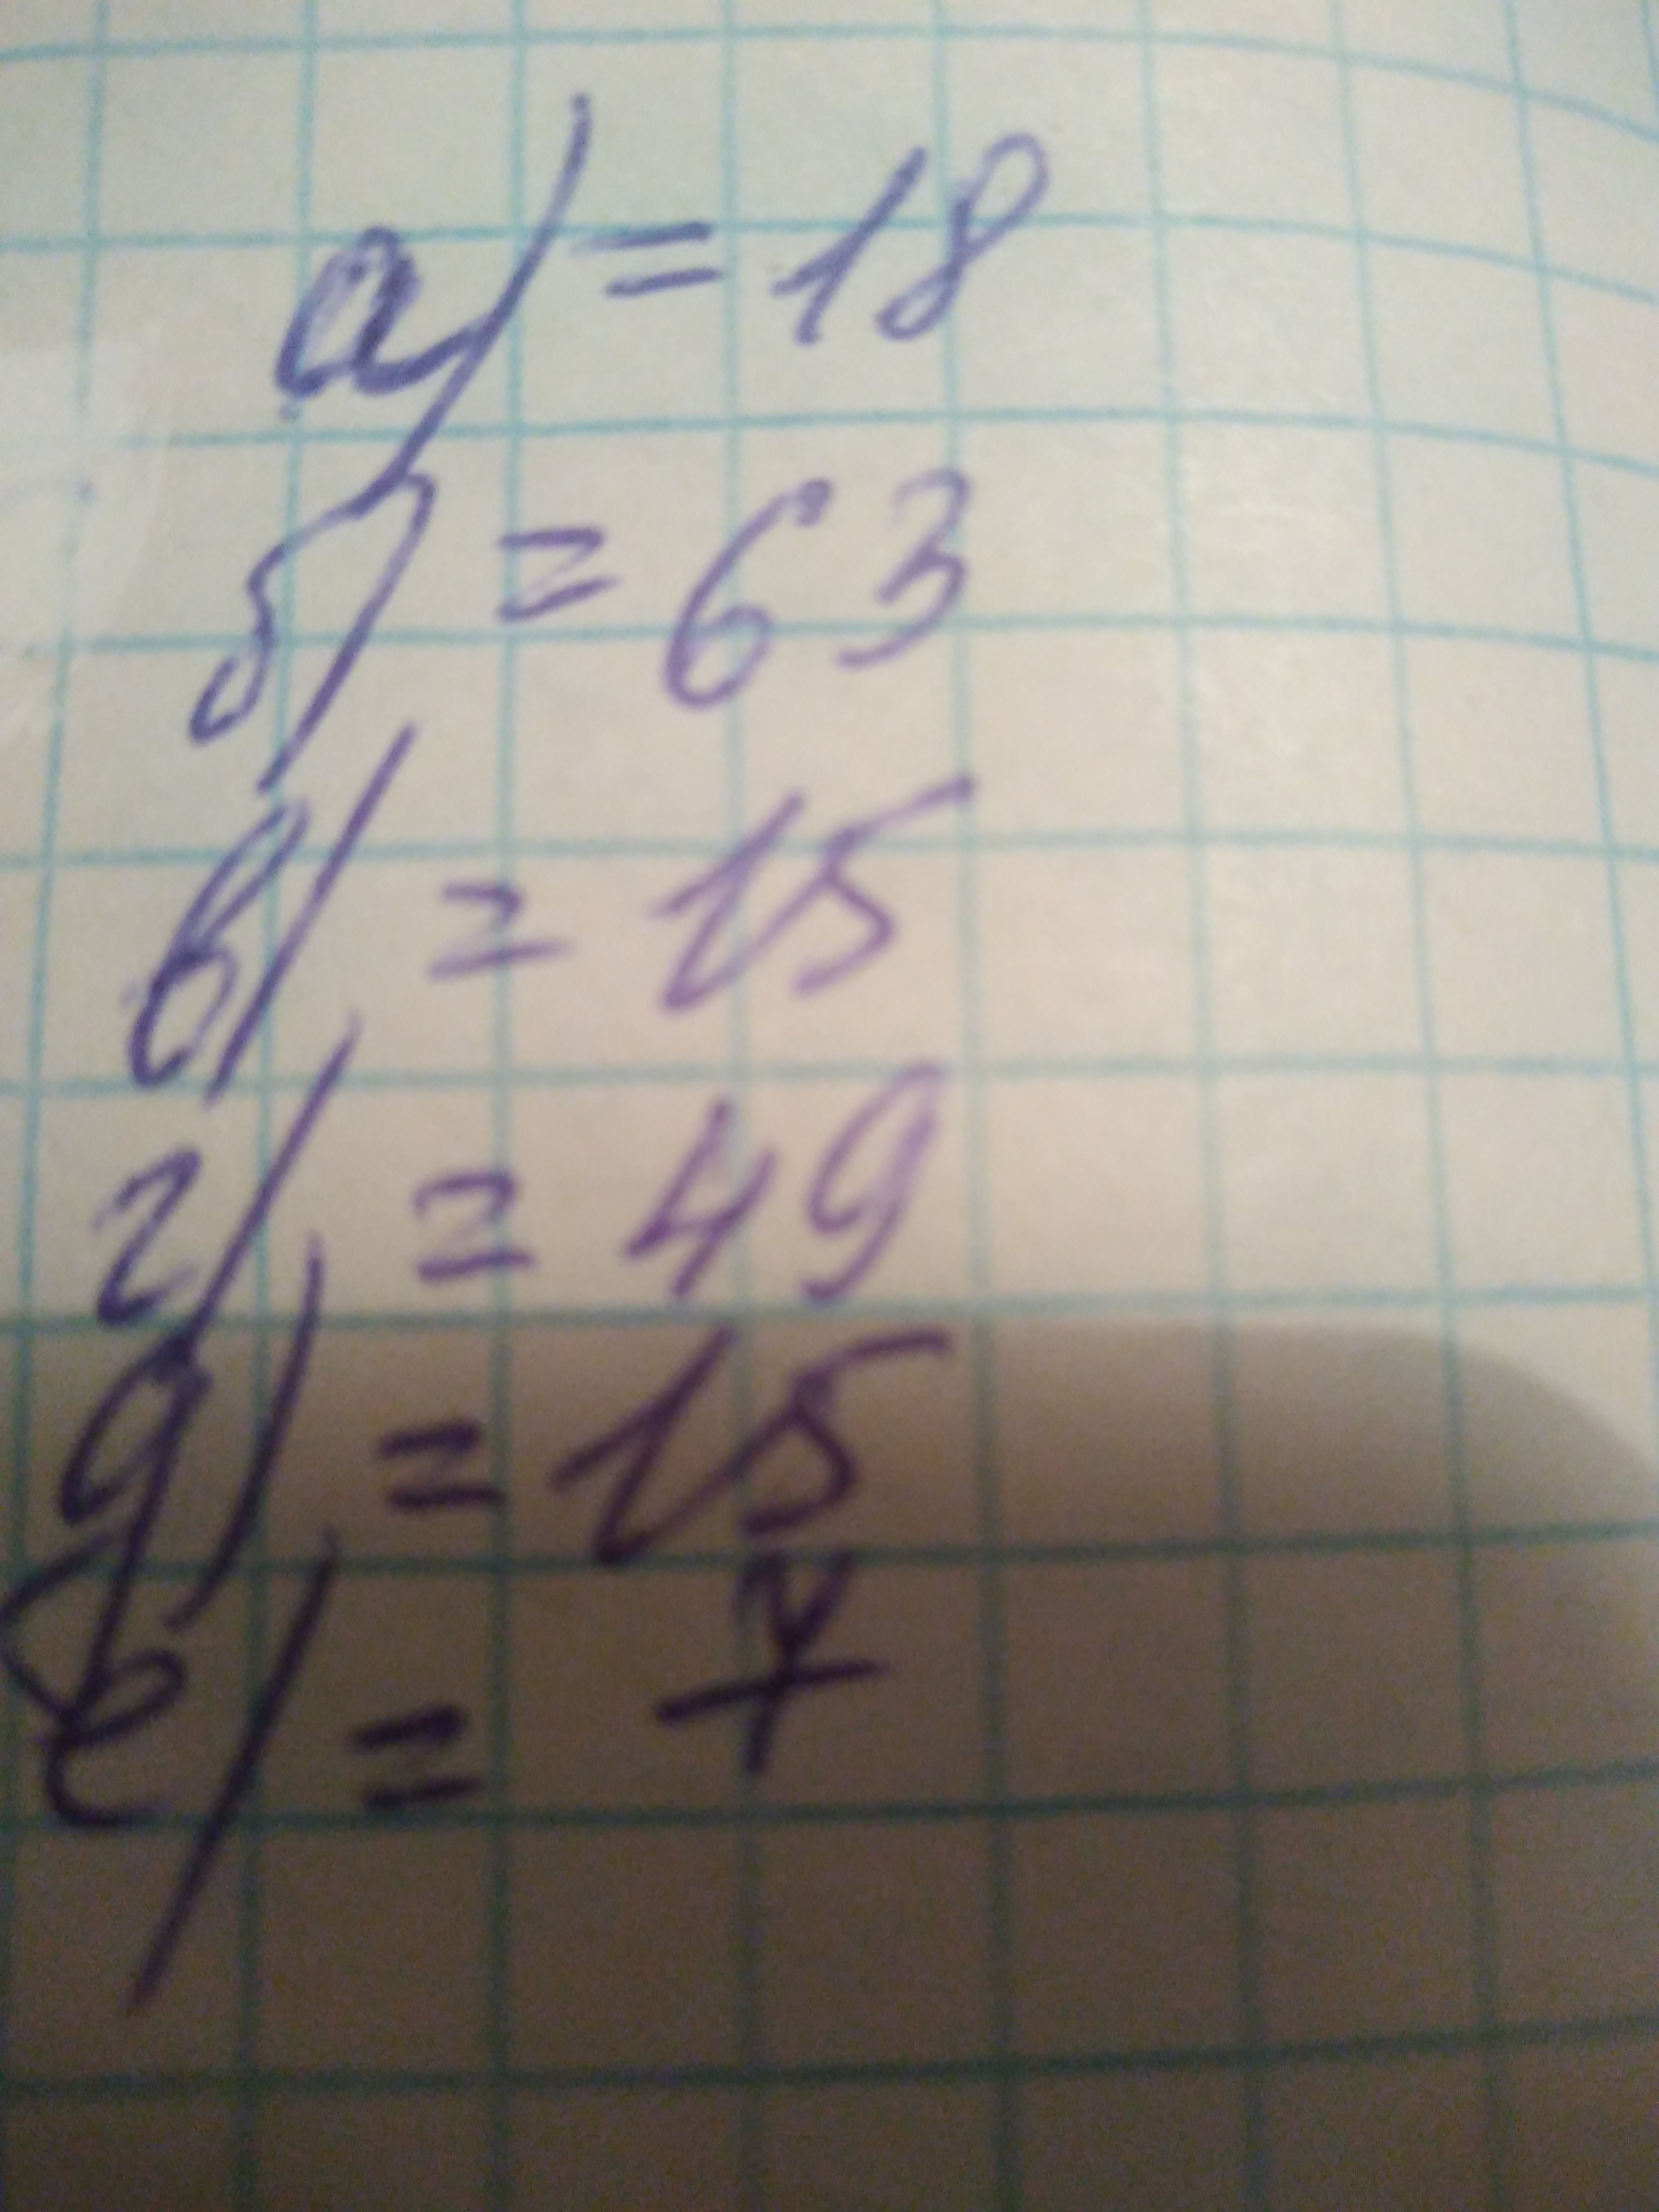 а) = 18
б) = 63
в) = 15
г) = 49
д) = 15
е) = 7